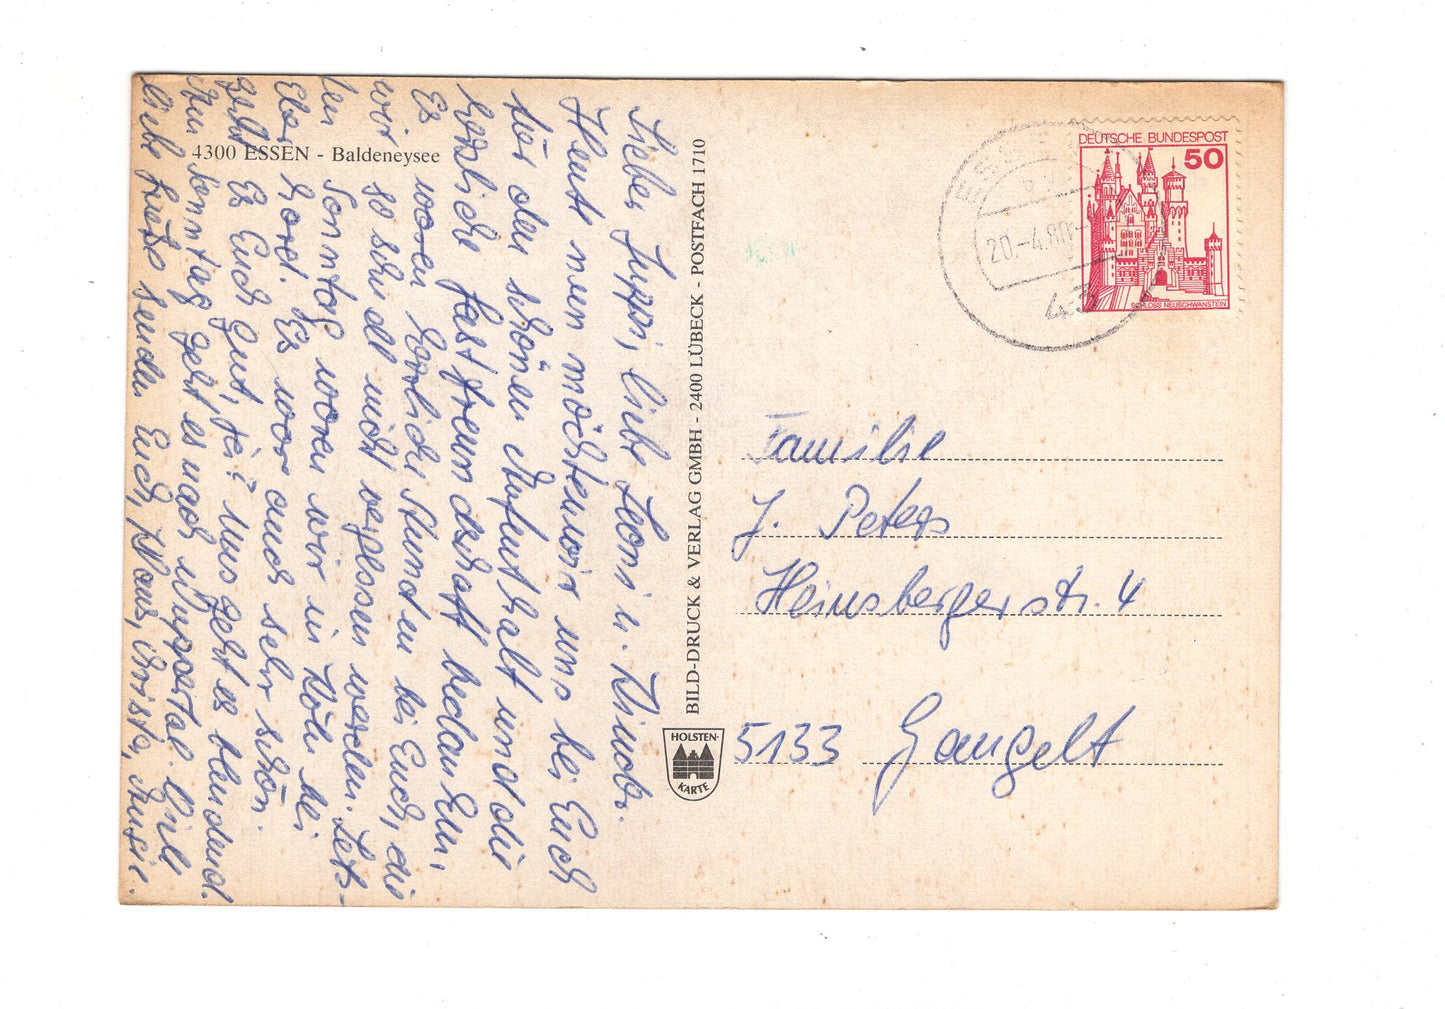 4300 ESSEN - Baldeneysee
Lieber Juppi, liebe Leoni u.
Heute nun möchten wir uns bei Euch
für den schönen Aufenthalt und die
herzliche Gastfreundschaft bedanken,
Es waren herrliche Stunden bei Euch, die
wir so schnell nicht vergessen werden. Letz-
ten Sonntag waren wir in Köln bei
Es war auch sehr schön.
geht Es Euch gut, ja? Uns geht es blendend.
Am Sonntag geht es nach Wuppertal. Viele
liebe Grüße senden Euch, Klaus, Christa,
BILD-DRUCK & VERLAG GMBH - 2400 LÜBECK - POSTFACH 1710
HOLSTEN-
KARTE
ESSEN
20.-4.80
43
DEUTSCHE BUNDESPOST
50
SCHLOSS NEUSCHWANSTEIN
Familie
J. Peters
Heinsbergerstr. 4
5133 Gangelt